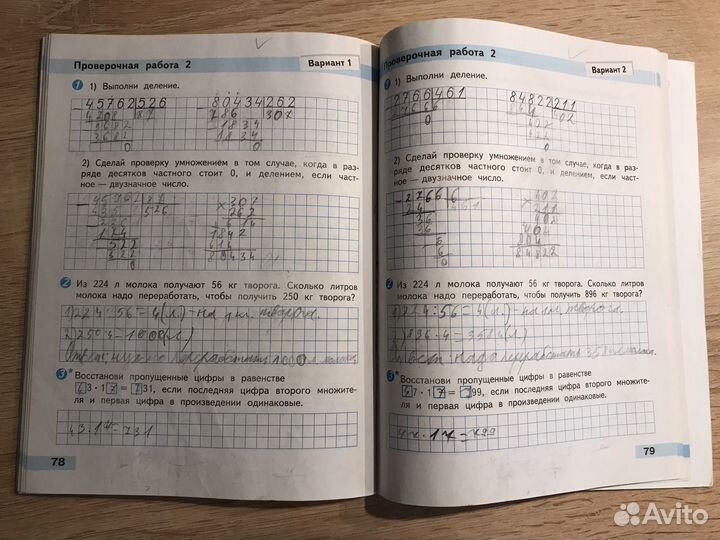 Проверочная работа 2
Вариант 1
1 1) Выполни деление.
45762 526
80434 262
4208 87
786 307
3682
1834
3682
1834
0
0
2) Сделай проверку умножением в том случае, когда в раз-
ряде десятков частного стоит 0, и делением, если част-
ное — двузначное число.
45762 87
307
435 526
262
614
174
1842
522
614
522
80434
0
2 Из 224 л молока получают 56 кг творога. Сколько литров
молока надо переработать, чтобы получить 250 кг творога?
1) 224:56=4(л.)-на 1 кг. творога.
2) 250·4=1000(л)
переработать 1000 л молока
3* Восстанови пропущенные цифры в равенстве
43·17=731, если последняя цифра второго множите-
ля и первая цифра в произведении одинаковые.
43·17=731
78
Проверочная работа 2
Вариант 2
1) Выполни деление.
2766 461
84822 211
0
402
2) Сделай проверку умножением в том случае, когда в раз-
ряде десятков частного стоит 0, и делением, если част-
ное — двузначное число.
2766 6
402
24 461
211
36
402
36
402
6
804
6
84822
0
2 Из 224 л молока получают 56 кг творога. Сколько литров
молока надо переработать, чтобы получить 896 кг творога?
1) 224:56=4(л.)-на 1 кг. творога.
2) 896·4=3584(л)
надо переработать 3584 л молока.
3* Восстанови пропущенные цифры в равенстве
47·17=799, если последняя цифра второго множите-
ля и первая цифра в произведении одинаковые.
47·17=799
79
Avito